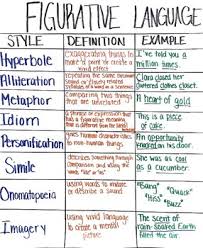 FIGURATIVE LANGUAGE
STYLE DEFINITION EXAMPLE
Hyperbole
Exaggerating things to
make a point or create a
vivid effect
I've told you a
million times.
Alliteration
repeating the same consonant
Clara closed her
cluttered clothes closet.
Metaphor
comparing two things that
are unrelated
A heart of gold
Idiom
a phrase or expression that
has a figurative meaning
This is a piece
of cake
Personification
human characteristics
to non-human things
An opportunity
knocked on his
door.
Simile
describes something through
comparison using
like or as
She was as cool
as a cucumber.
Onomatopoeia
using words to imitate
or describe a sound
"Bang" "Quack"
"Hiss" "Buzz"
Imagery
using vivid language
to create a mental
picture
The scent of
rain-soaked Earth
filled the air.